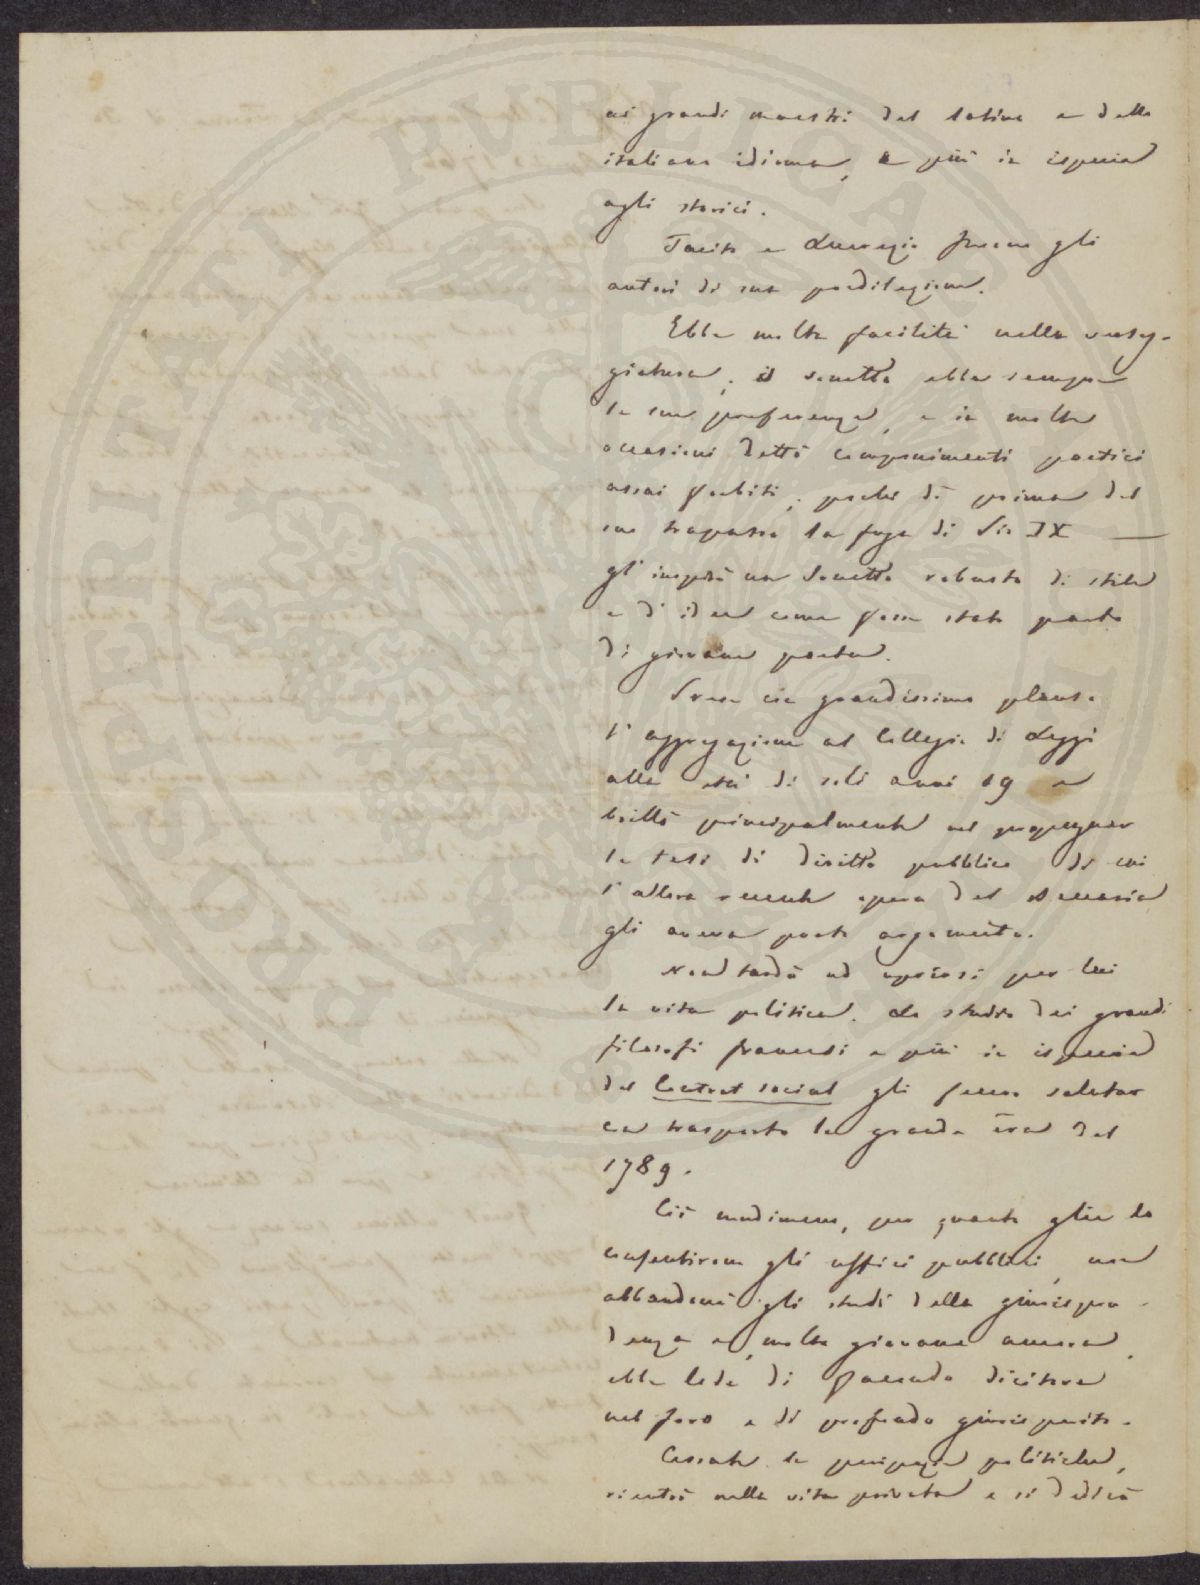 ai grandi maestri del latino e dello
italiano idioma, e più in ispecie
agli storici.
Tacito e Lucrezio furono gli
autori di sua predilezione.
Ebbe molta facilità nella verseg-
giatura; il sonetto ebbe sempre
la sua preferenza, e in molte
occasioni dettò componimenti poetici
assai forbiti; pochi dì prima del
suo trapasso la fuga di Pio IX
gl' inspirò un Sonetto robusto di stile
e d' idee come fosse stato parto
di giovane poeta.
Prese con grandissimo plauso
l' aggregazione al Collegio di Leggi
alla età di soli anni 19 e
brillò principalmente nel propugnar
le tesi di diritto pubblico di cui
l' allora recente opera del Beccaria
gli aveva porto argomento.
Non tardò ad aprirsi per lui
la vita politica. Lo studio dei grandi
filosofi francesi e più in ispecie
del Contrat social gli fecero salutar
con trasporto la grande èra del
1789.
Ciò nondimeno, per quanto glie lo
consentirono gli uffici pubblici, non
abbandonò gli studi della giurispru-
denza e, molto giovane ancora,
ebbe lode di facondo dicitore
nel foro e di profondo giurisperito.
Cessate le peripezie politiche,
rientrò nella vita privata e si dedicò
PROSPERITATI PUBLICAE